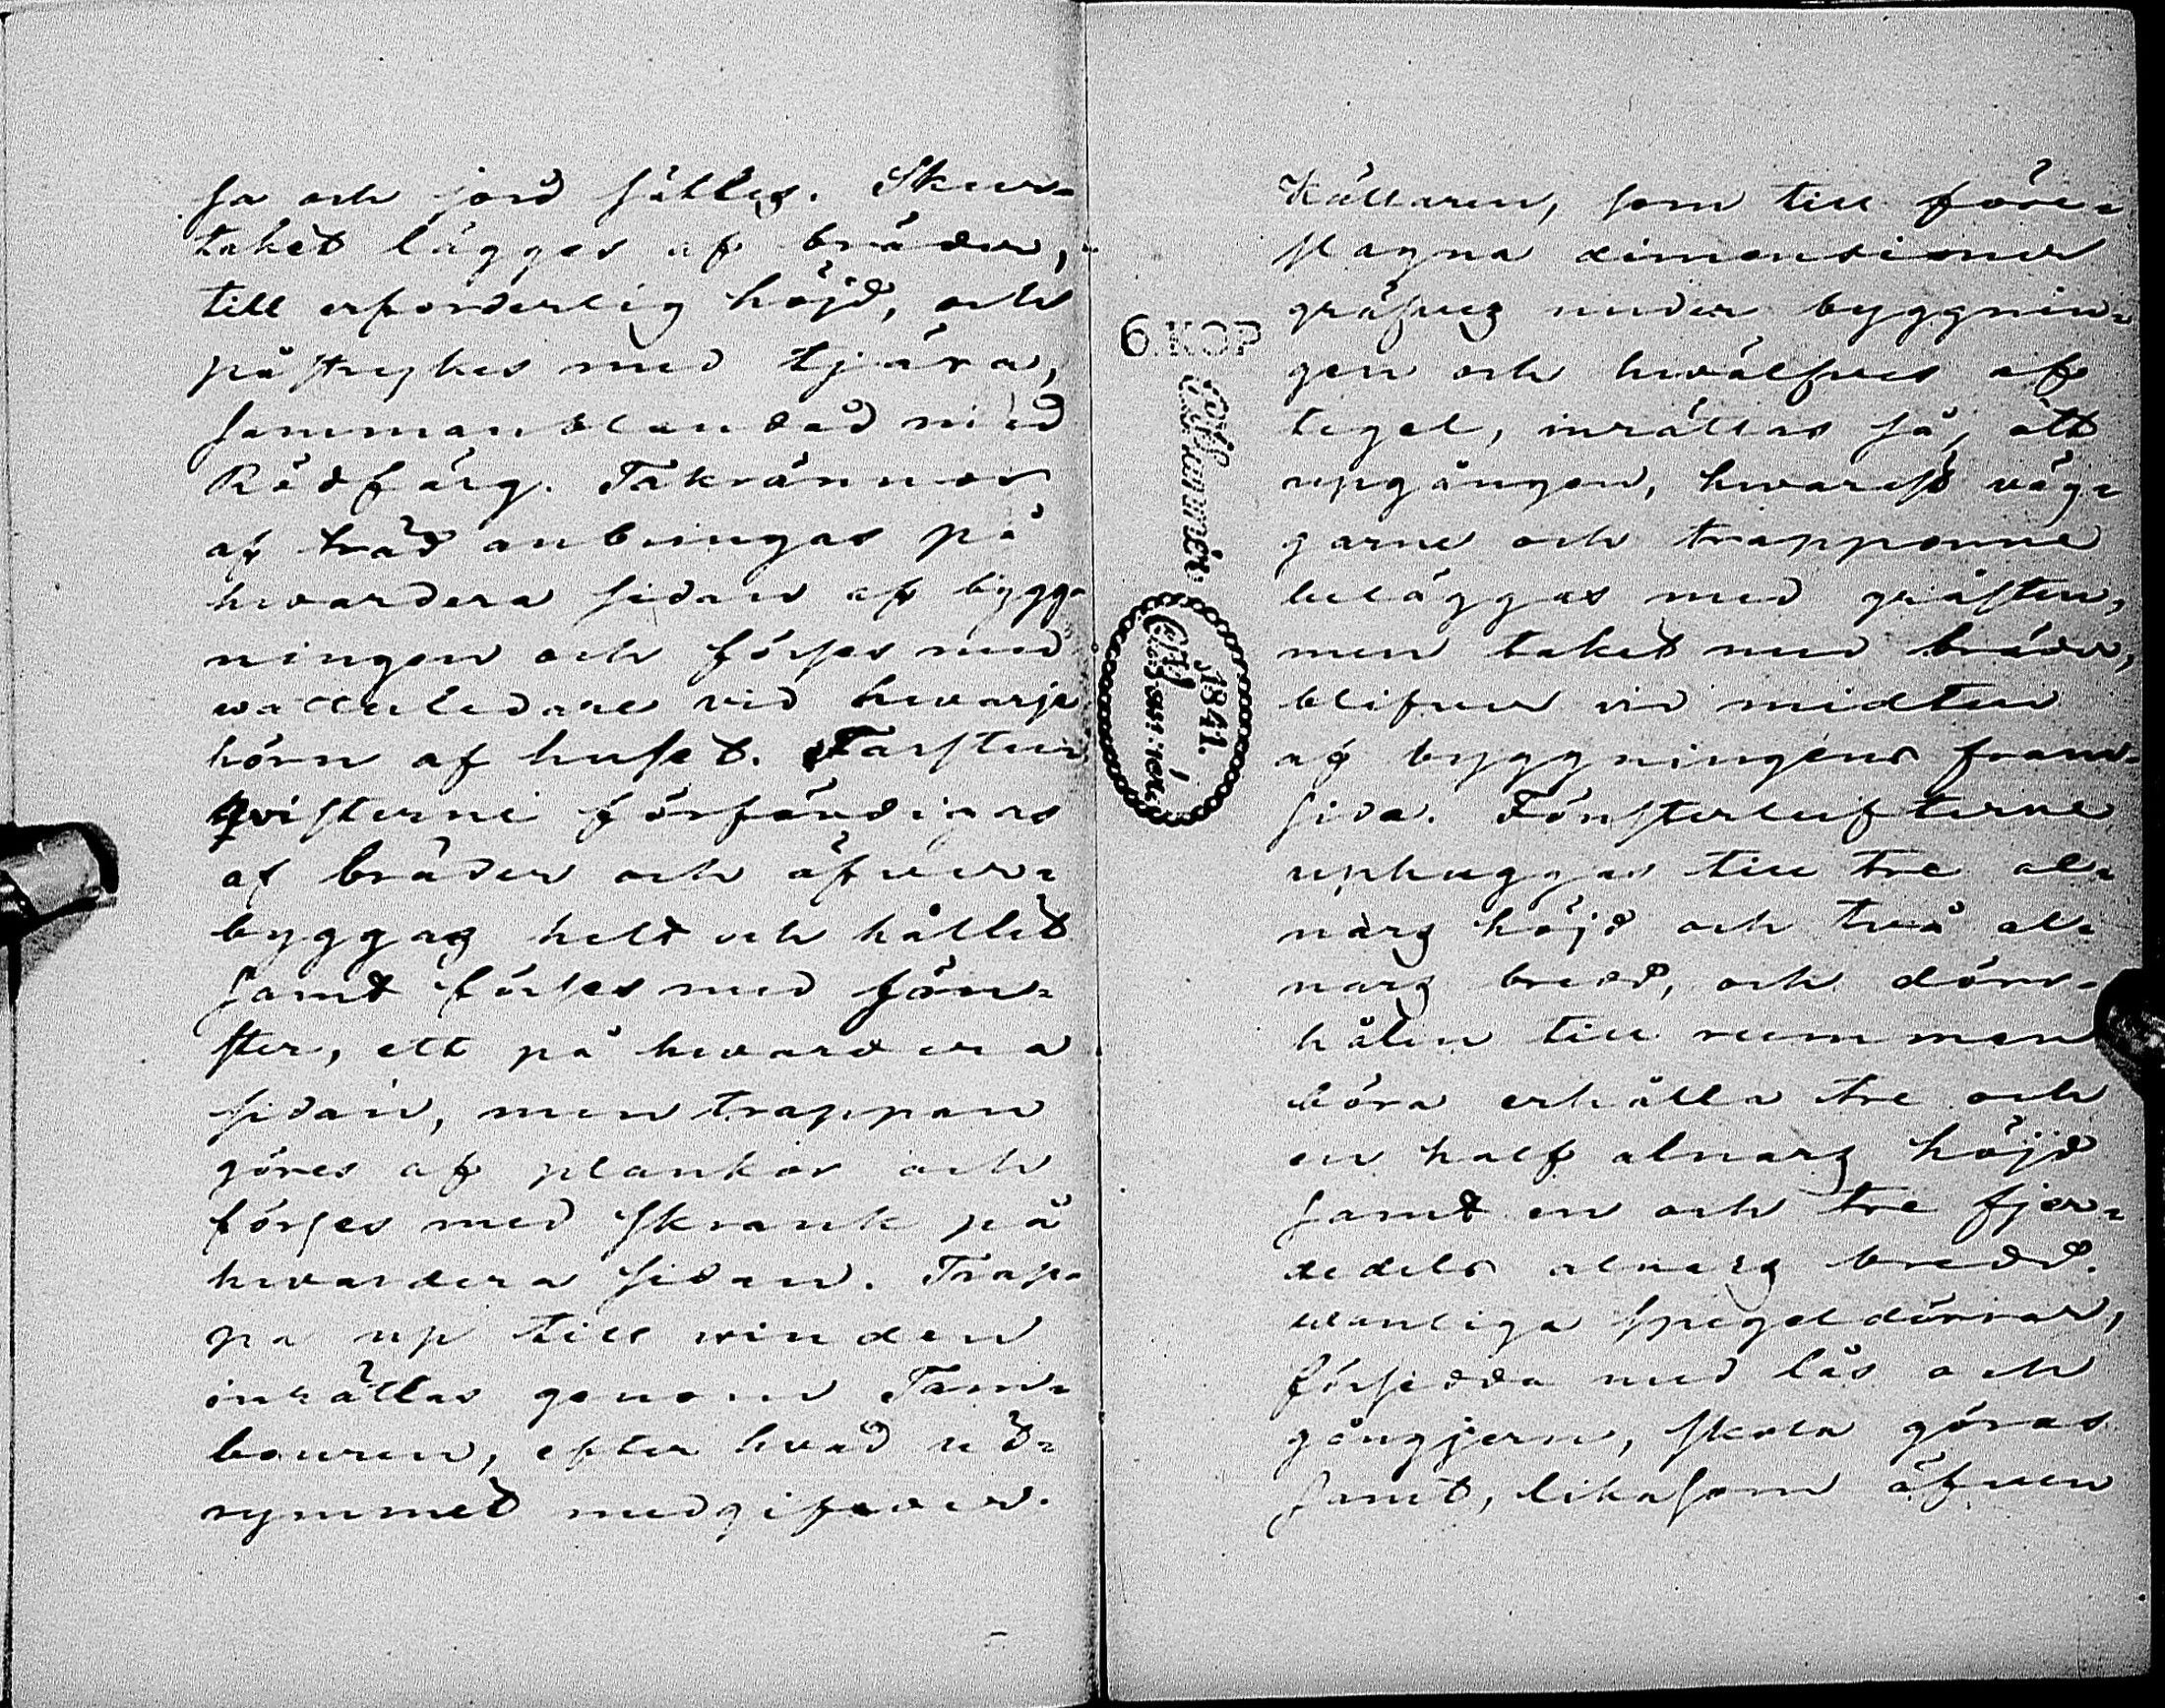 sa och jord fylles. Skur-
taket lägges af bräder,
till erforderlig höjd, och
påstrykes med tjära,
sammanblandad med
Rödfärg. Takrännor
af träd anbringas på
hvardera sidan af bygg-
ningen och förses med
wattuledare vid hvarje
hörn af huset. Farstu
qvisterne förfärdigas
af bräder och öfver-
byggas helt och hållet
samt förses med fön-
ster, ett på hvardera
sidan, men trappan
göres af plankor och
förses med skrank på
hvardera sidan. Trap-
pa up till vinden
inrättas genom Tam-
bouren, efter hvad ut-
rymmet medgifver.
6. KOP
1841.
Källaren, som till före-
slagna dimensioner
gräfves under byggnin-
gen och hvälfves af
tegel, inrättas så, att
upgången, hvarest väg-
garne och trapporne
beläggas med gråsten,
men taket med bräder,
blifver vid midten
af byggningens fram-
sida. Fönsterlufterne
uphuggas till tre al-
nars höjd och två al-
nars bredd, och dörr-
hålen till rummen
böra erhålla tre och
en half alnars höjd
samt en och tre fjer-
dedels alnars bredd.
wanliga spegeldörrar,
försedda med lås och
gångjern, skola göras
samt, likasom äfven